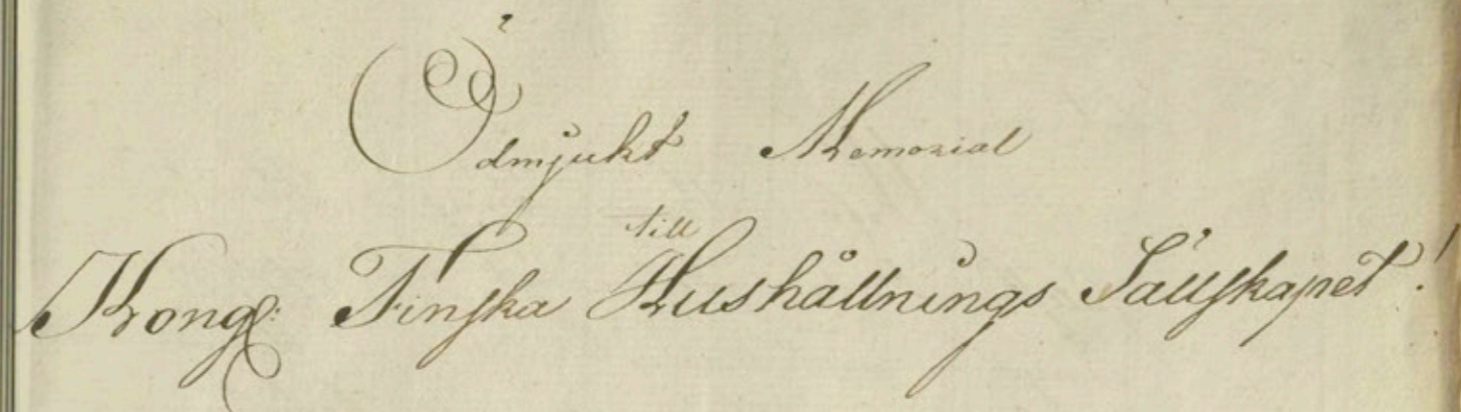 Ödmjukt Memorial
till
Kongl: Finska Hushållnings Sällskapet!